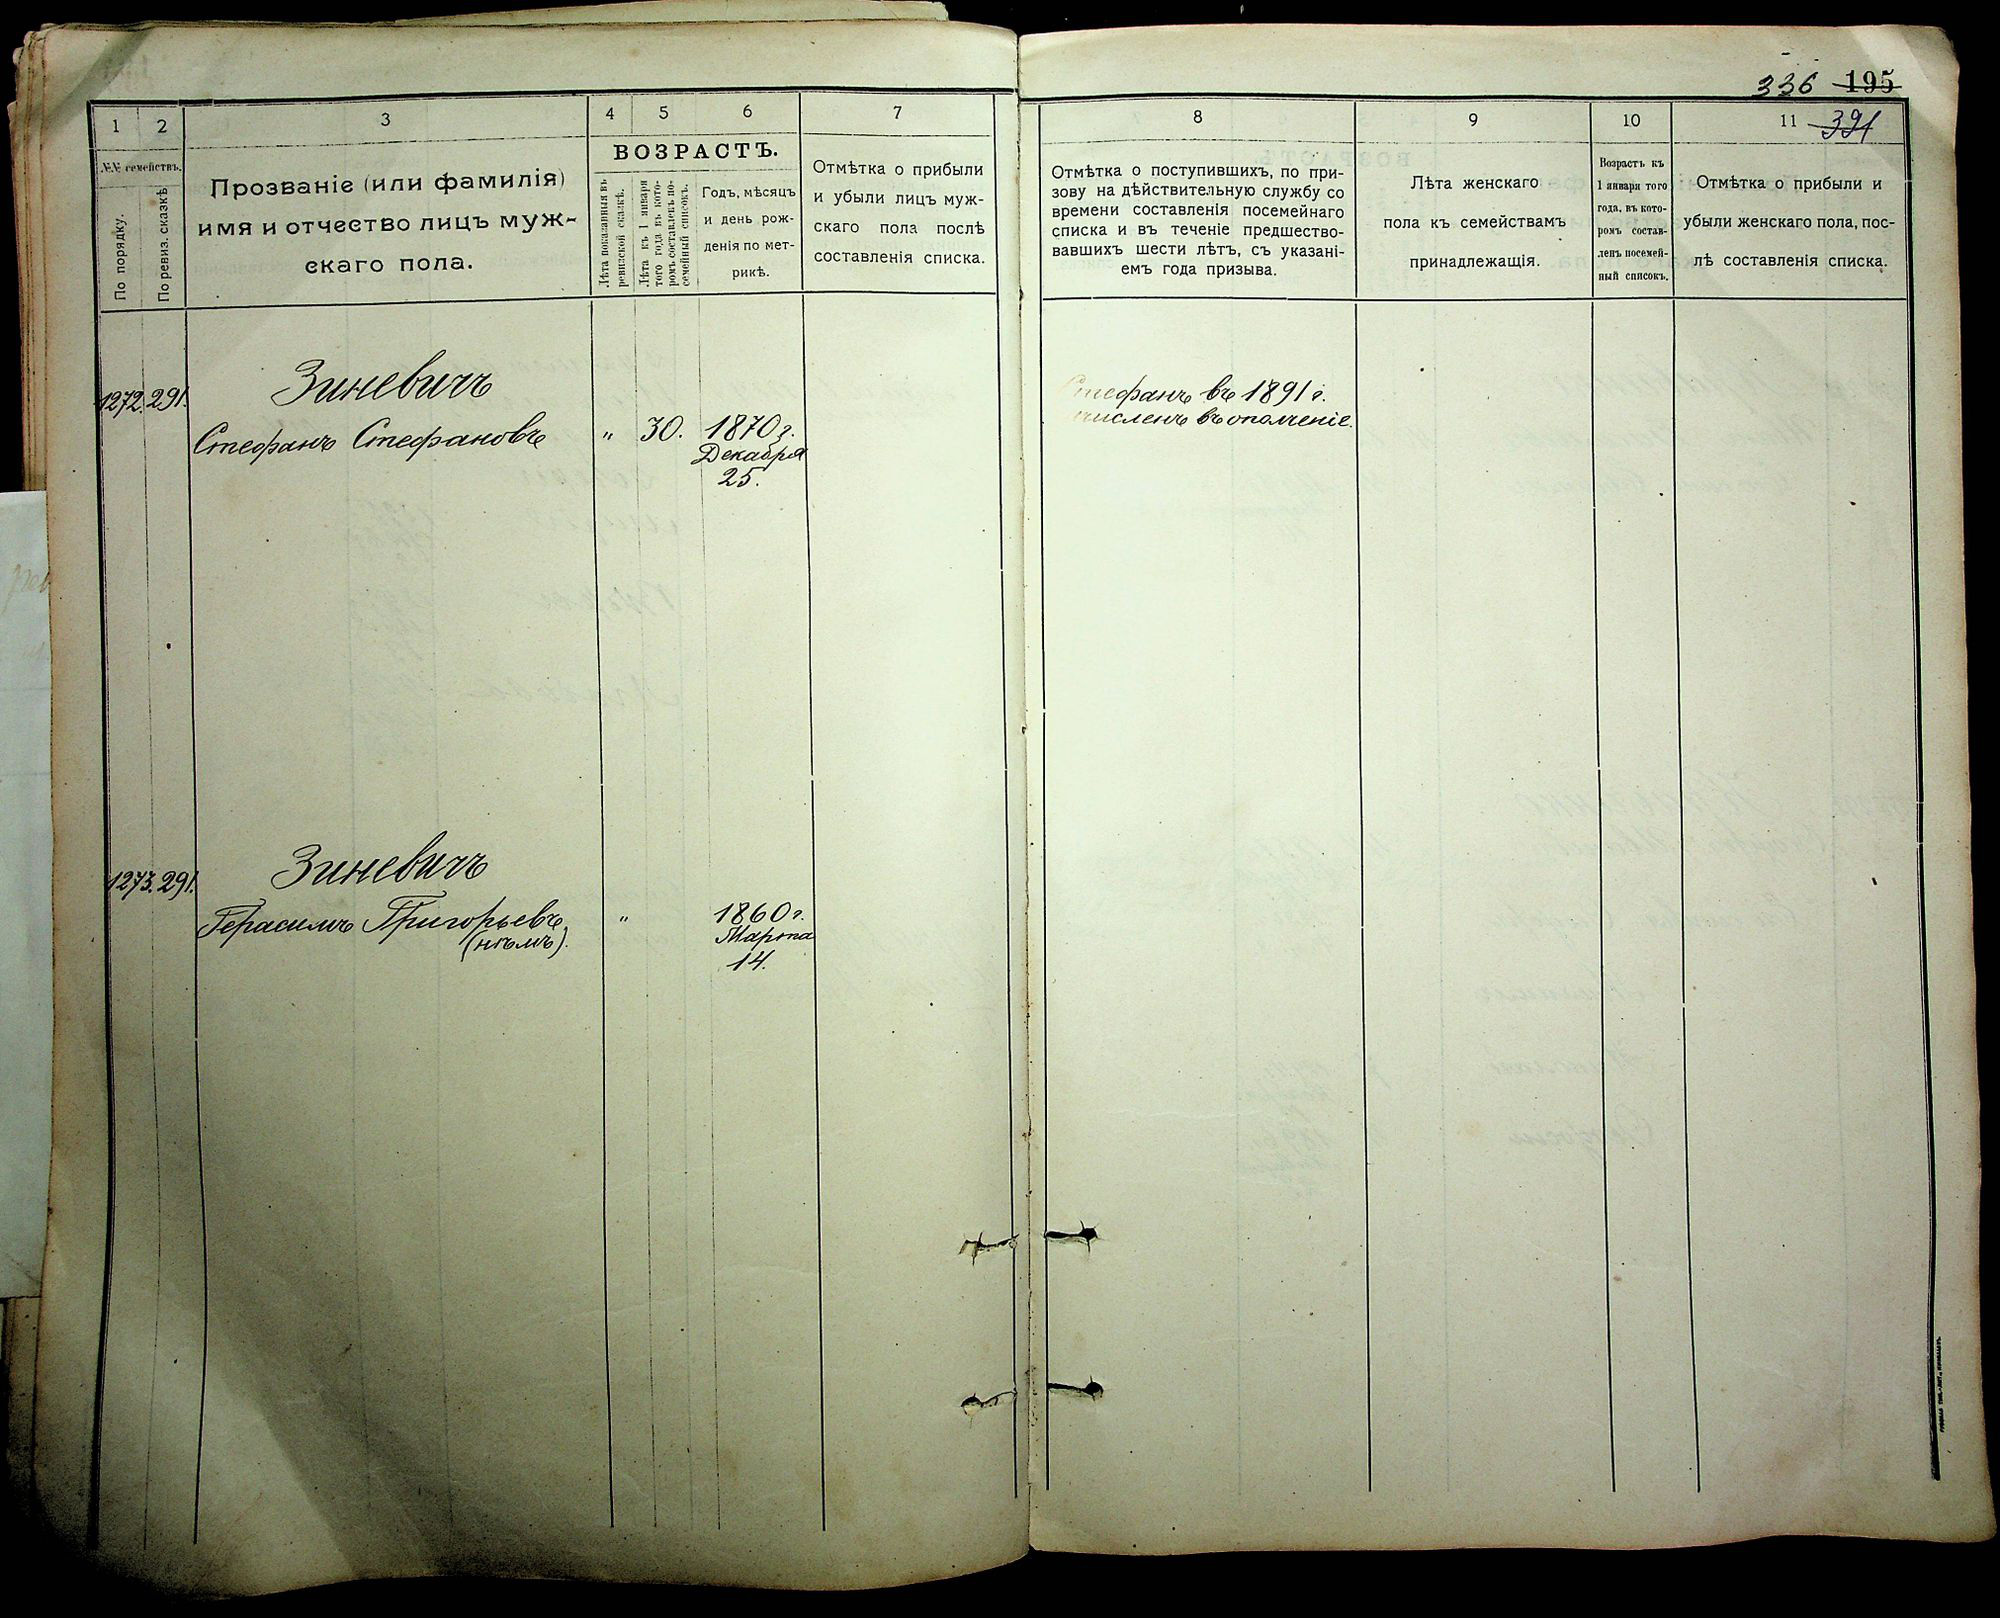 336 195
391
1 2 3 4 5 6 7 8 9 10 11
№№ семействъ.
По порядку.
По ревиз. сказкѣ
Прозваніе (или фамилія)
имя и отчество лицъ муж-
скаго пола.
ВОЗРАСТЪ.
Лѣта показанныя въ
ревизской сказкѣ.
Лѣта къ 1 января
того года въ кото-
ромъ составленъ по-
семейный списокъ.
Годъ, мѣсяцъ
и день рож-
денія по мет-
рикѣ.
Отмѣтка о прибыли
и убыли лицъ муж-
скаго пола послѣ
составленія списка.
Отмѣтка о поступившихъ, по при-
зову на дѣйствительную службу со
времени составленія посемейнаго
списка и въ теченіе предшество-
вавшихъ шести лѣтъ, съ указані-
емъ года призыва.
Лѣта женскаго
пола къ семействамъ
принадлежащія.
Возрастъ къ
1 января того
года, въ кото-
ромъ состав-
ленъ посемей-
ный списокъ.
Отмѣтка о прибыли и
убыли женскаго пола, пос-
лѣ составленія списка.
1272. 291. Зиневичъ
Стефанъ Стефановъ " 30. 1870 г.
Декабря
25.
Стефанъ въ 1891 г.
зачисленъ въ ополченіе.
1273. 291. Зиневичъ
Герасимъ Григорьевъ " 1860 г.
(нѣмъ). Марта
14.